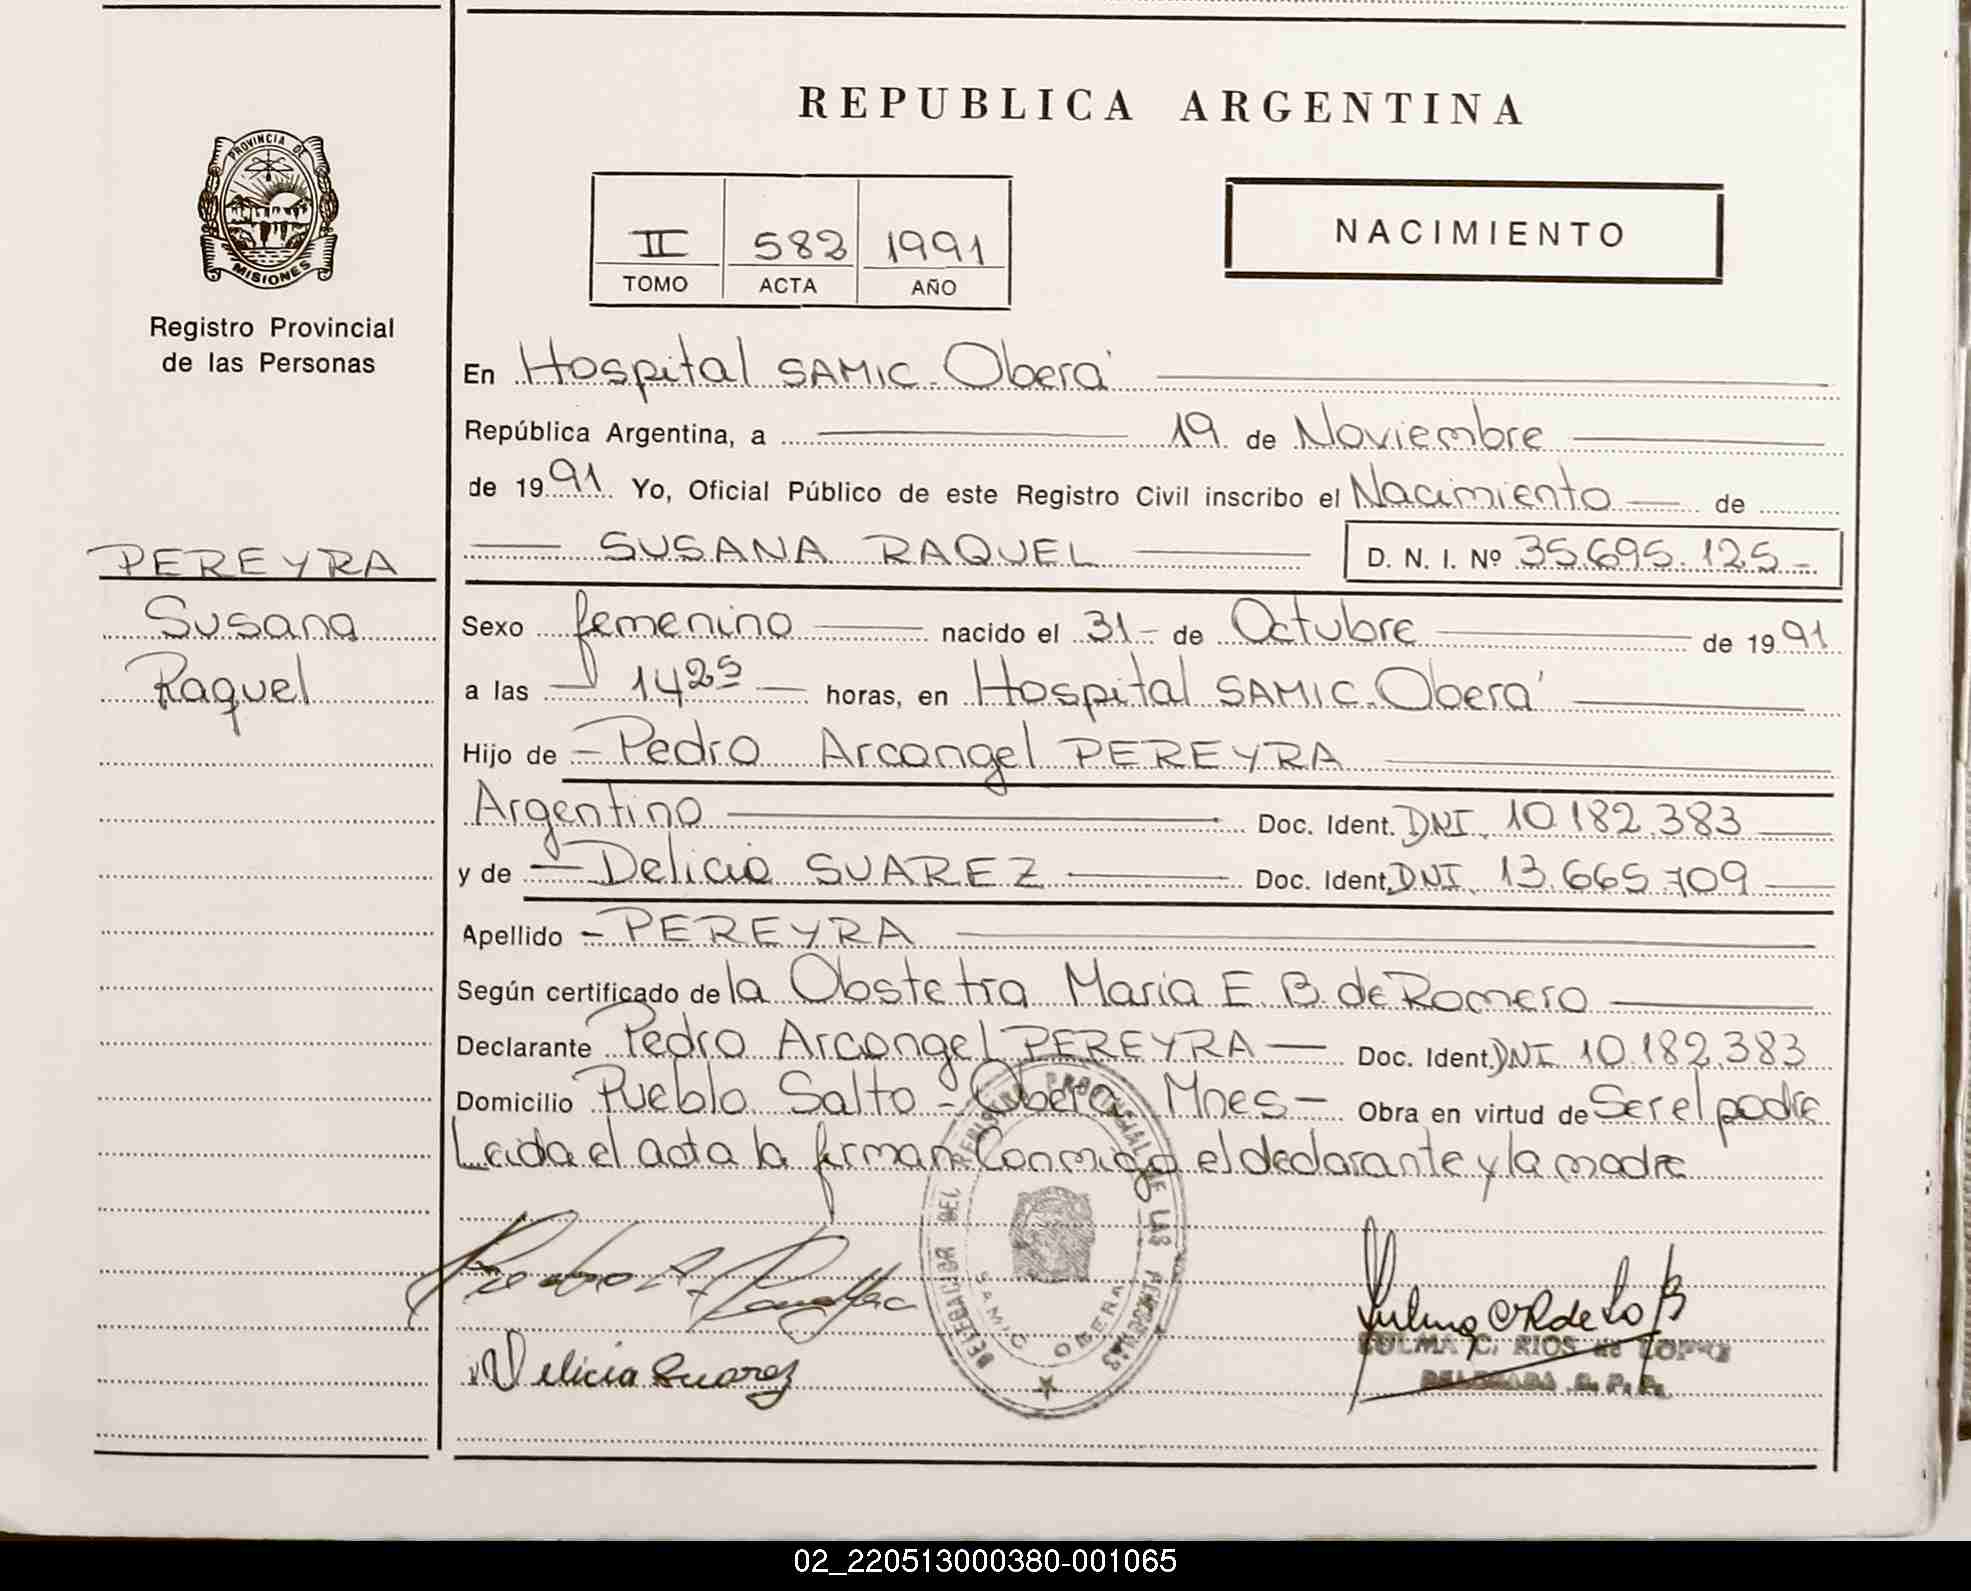 REPUBLICA ARGENTINA
PROVINCIA DE
MISIONES
Registro Provincial
de las Personas
II 582 1991
TOMO ACTA AÑO
NACIMIENTO
En Hospital SAMIC. Oberá
República Argentina, a 19 de Noviembre
de 1991. Yo, Oficial Público de este Registro Civil inscribo el Nacimiento de
SUSANA RAQUEL D. N. I. Nº 35.695.125
PEREYRA
Susana
Raquel
Sexo femenino nacido el 31 de Octubre de 1991
a las 14 25 horas, en Hospital SAMIC. Oberá
Hijo de Pedro Arcangel PEREYRA
Argentino Doc. Ident. DNI. 10.182.383
y de Delicia SUAREZ Doc. Ident. DNI. 13.665.709
Apellido PEREYRA
Según certificado de la Obstetra Maria E. B. de Romero
Declarante Pedro Arcangel PEREYRA Doc. Ident. DNI 10.182.383
Domicilio Pueblo Salto - Oberá Mnes Obra en virtud de Ser el padre
Leida el acta la firman Conmigo el declarante y la madre
DELEGACION DEL REGISTRO PROVINCIAL DE LAS PERSONAS
SAMIC OBERA
Pedro A.
Delicia Suarez
ZULMA C. RIOS de
DELEGADA R. P. P.
02_220513000380-001065